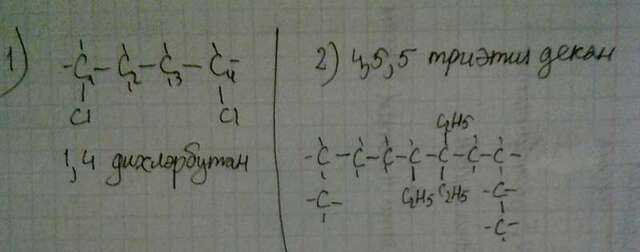 1)
-C1-C2-C3-C4-
Cl Cl
1,4 дихлорбутан
2) 4,5,5 триэтил декан
C2H5
-C-C-C-C-C-C-C-
-C- C2H5 C2H5 -C-
-C-